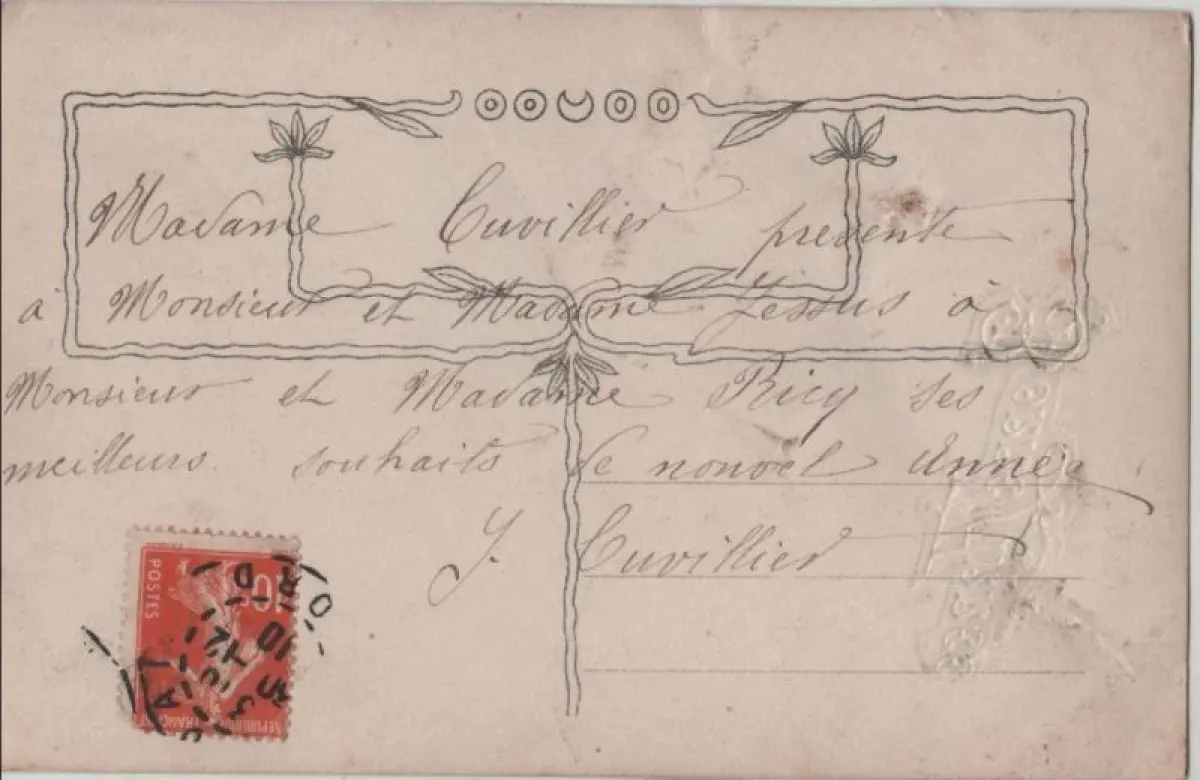 Madame Cuvillier presente
à Monsieur et Madame Zessus à
Monsieur et Madame Ricq ses
meilleurs souhaits de nouvel Année
J. Cuvillier
POSTES
10